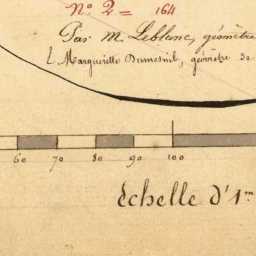 N° 2 = 164
Par M. Leblanc, géomètre
Margueritte Dumesnil, géomètre
60 70 80 90 100
Echelle d'1